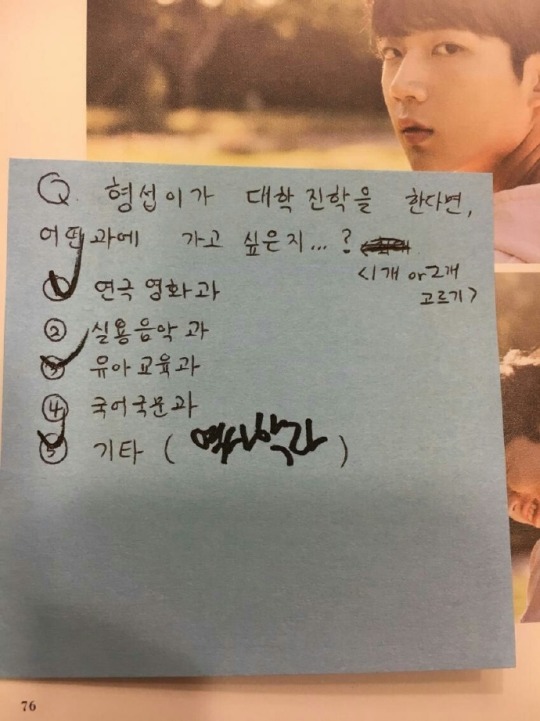 Q 형섭이가 대학 진학을 한다면,
어떤과에 가고 싶은지...?
<1개 or 2개
고르기>
① 연극영화과
② 실용음악과
③ 유아교육과
④ 국어국문과
⑤ 기타 ( 역사학과 )
76